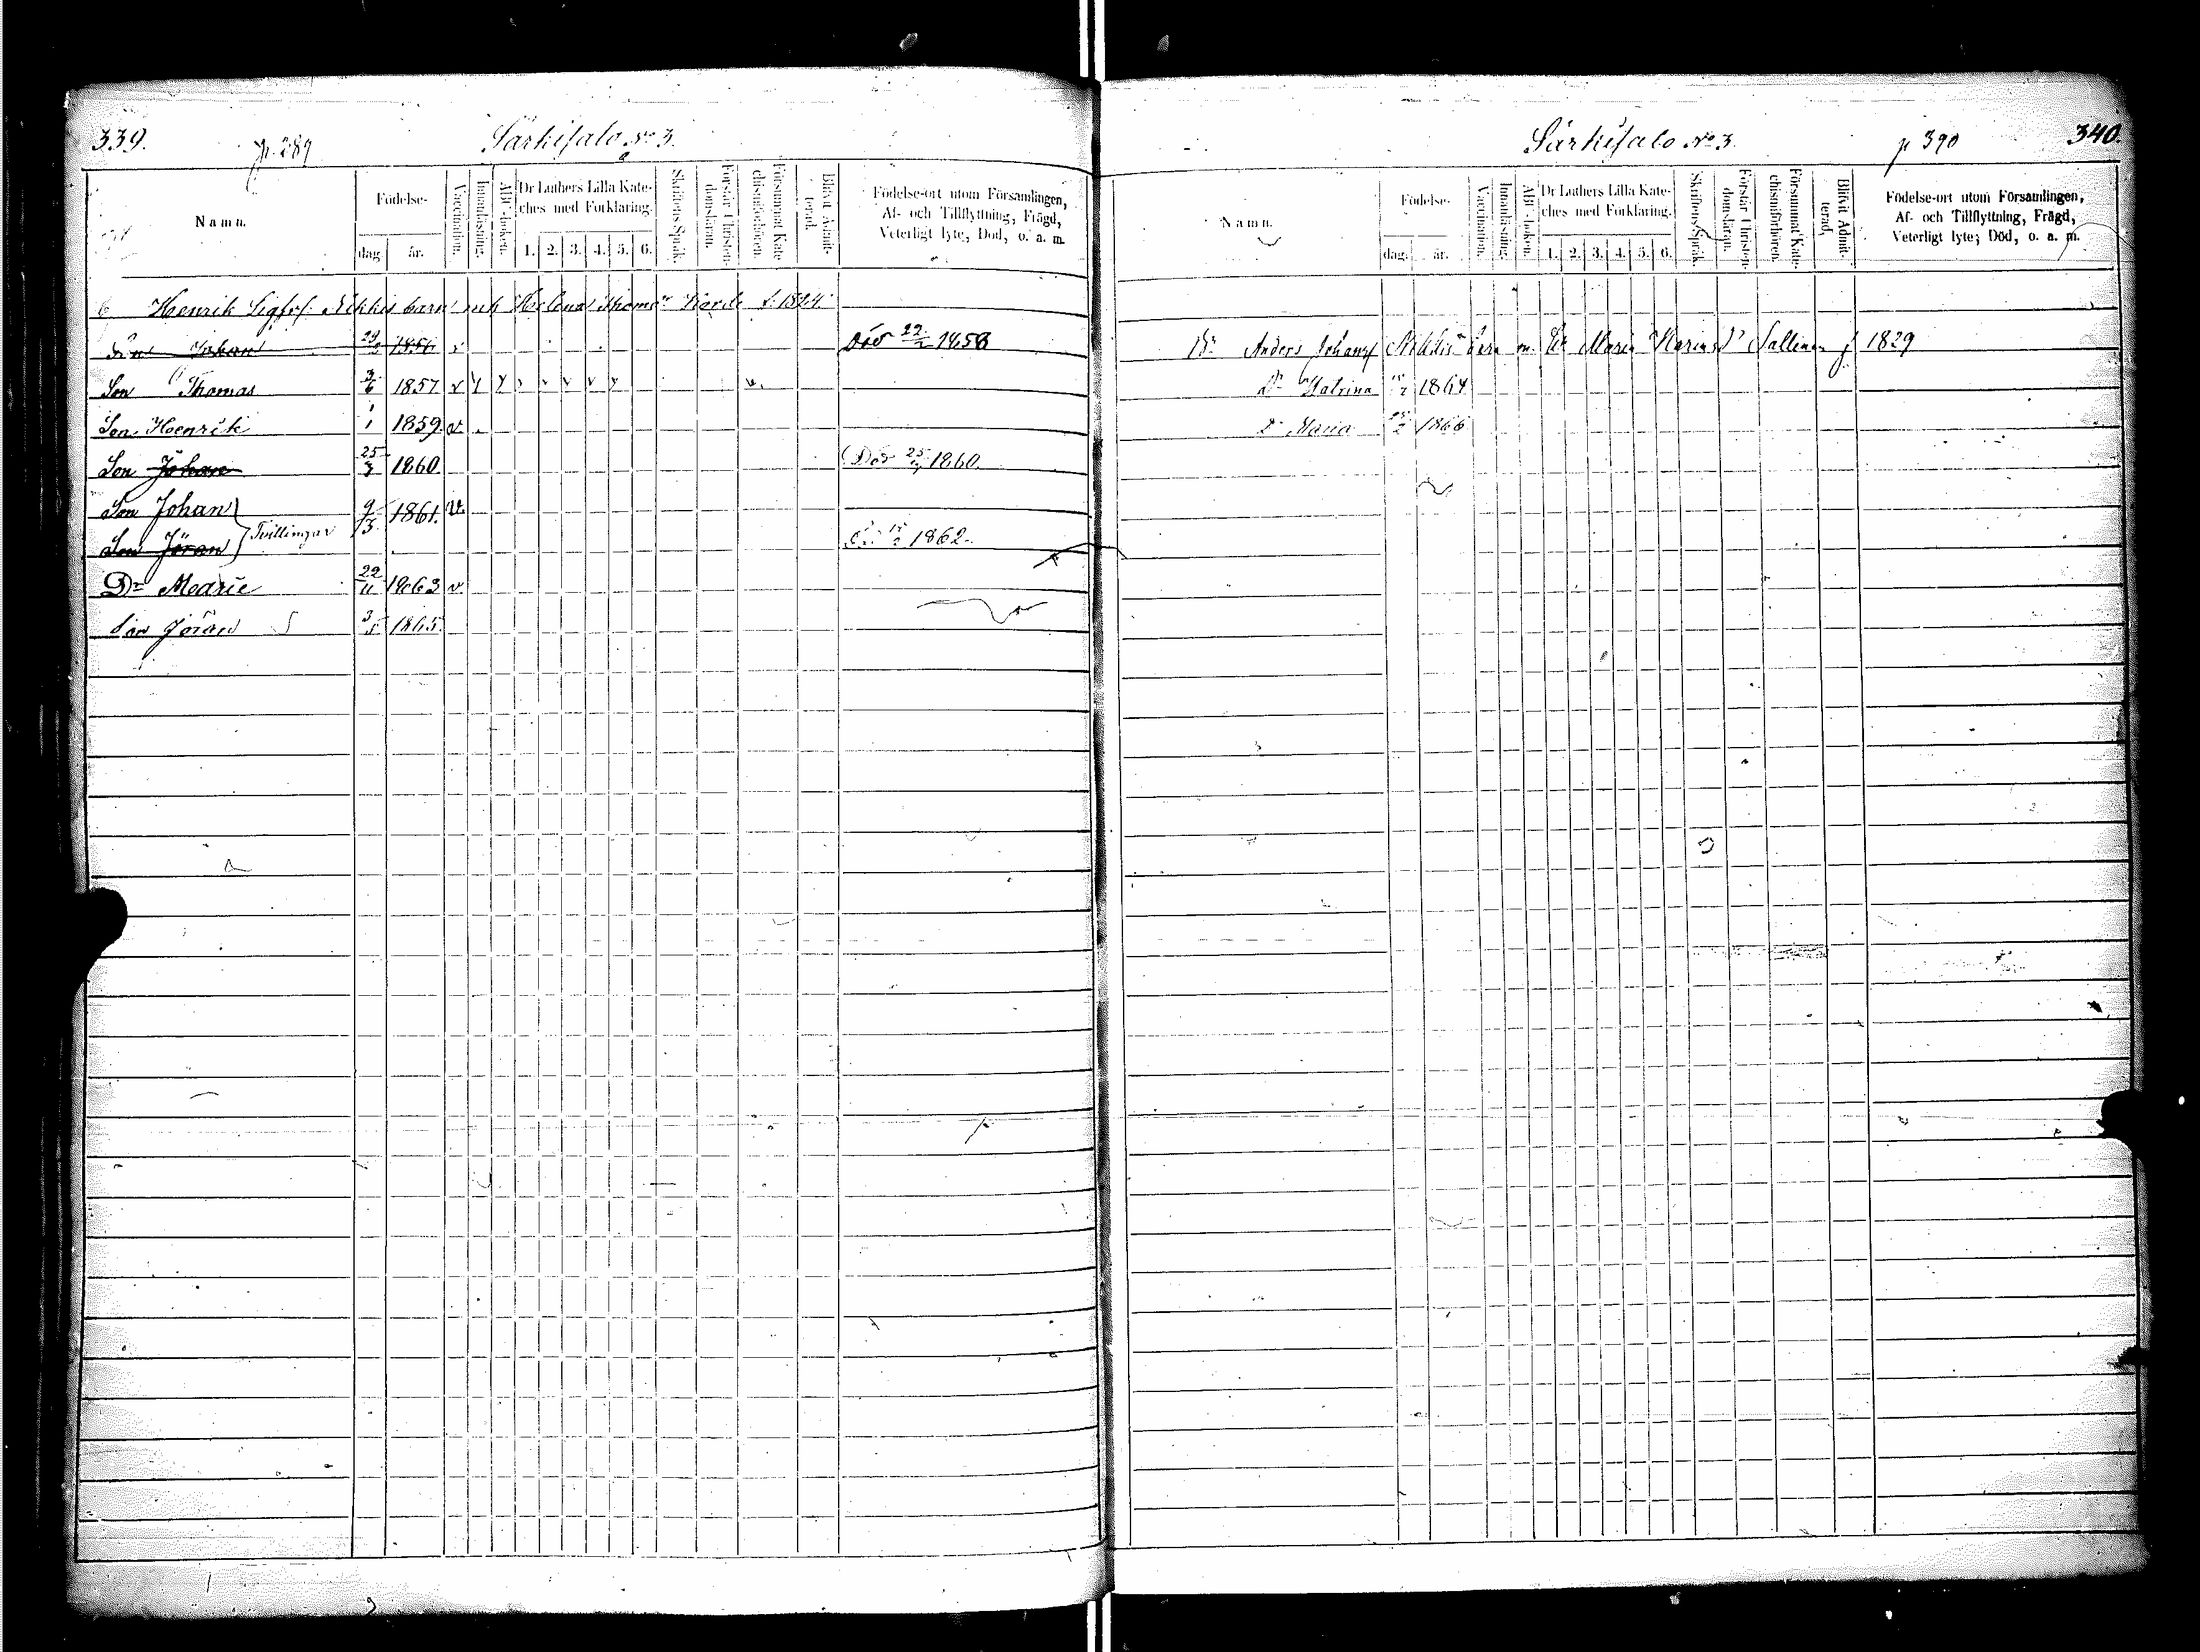 339.
p. 289
Särkisalo No 3.
Namn.
Födelse-
dag.
år.
Vaccination.
Innanläsning.
ABC-boken.
Dr Luthers Lilla Kate-
ches med Förklaring.
1. 2. 3. 4. 5. 6.
Skriftens Språk.
Förstår Christen-
domsläran.
Försummat Kate-
chismiförhören.
Blifvit Admit-
terad.
Födelse-ort utom Församlingen,
Af- och Tillflyttning, Frägd,
Veterligt lyte, Död, o. a. m.
Henrik Sigfrs: Nikkis barn Helena Thoms f. 1824
Son Johan 1856 v Död 22/2 1858
Son Thomas 3/6 1857 v v v v v v v v v.
Son Henrik 1/1 1859 v
Son Johan 25/3 1860. Död 25/ 1860.
Son Johan } Tvillingar 9/3 1861. v.
Son Jöran 1862.
Dr Maria 22/11 1863 v
Son Jöran 3/5 1865.
Särkisalo No 3.
p 390
340.
Namn.
Födelse-
dag.
år.
Vaccination.
Innanläsning.
ABC-boken.
Dr Luthers Lilla Kate-
ches med Förklaring.
1. 2. 3. 4. 5. 6.
Skriftens Språk.
Förstår Christen-
domsläran.
Försummat Kate-
chismiförhören.
Blifvit Admit-
terad.
Födelse-ort utom Församlingen,
Af- och Tillflyttning, Frägd,
Veterligt lyte; Död, o. a. m.
Anders Johansf Nikkis barn m. Maria Sallinen f 1829
Dr Katrina 1864
Dr Maria 1866